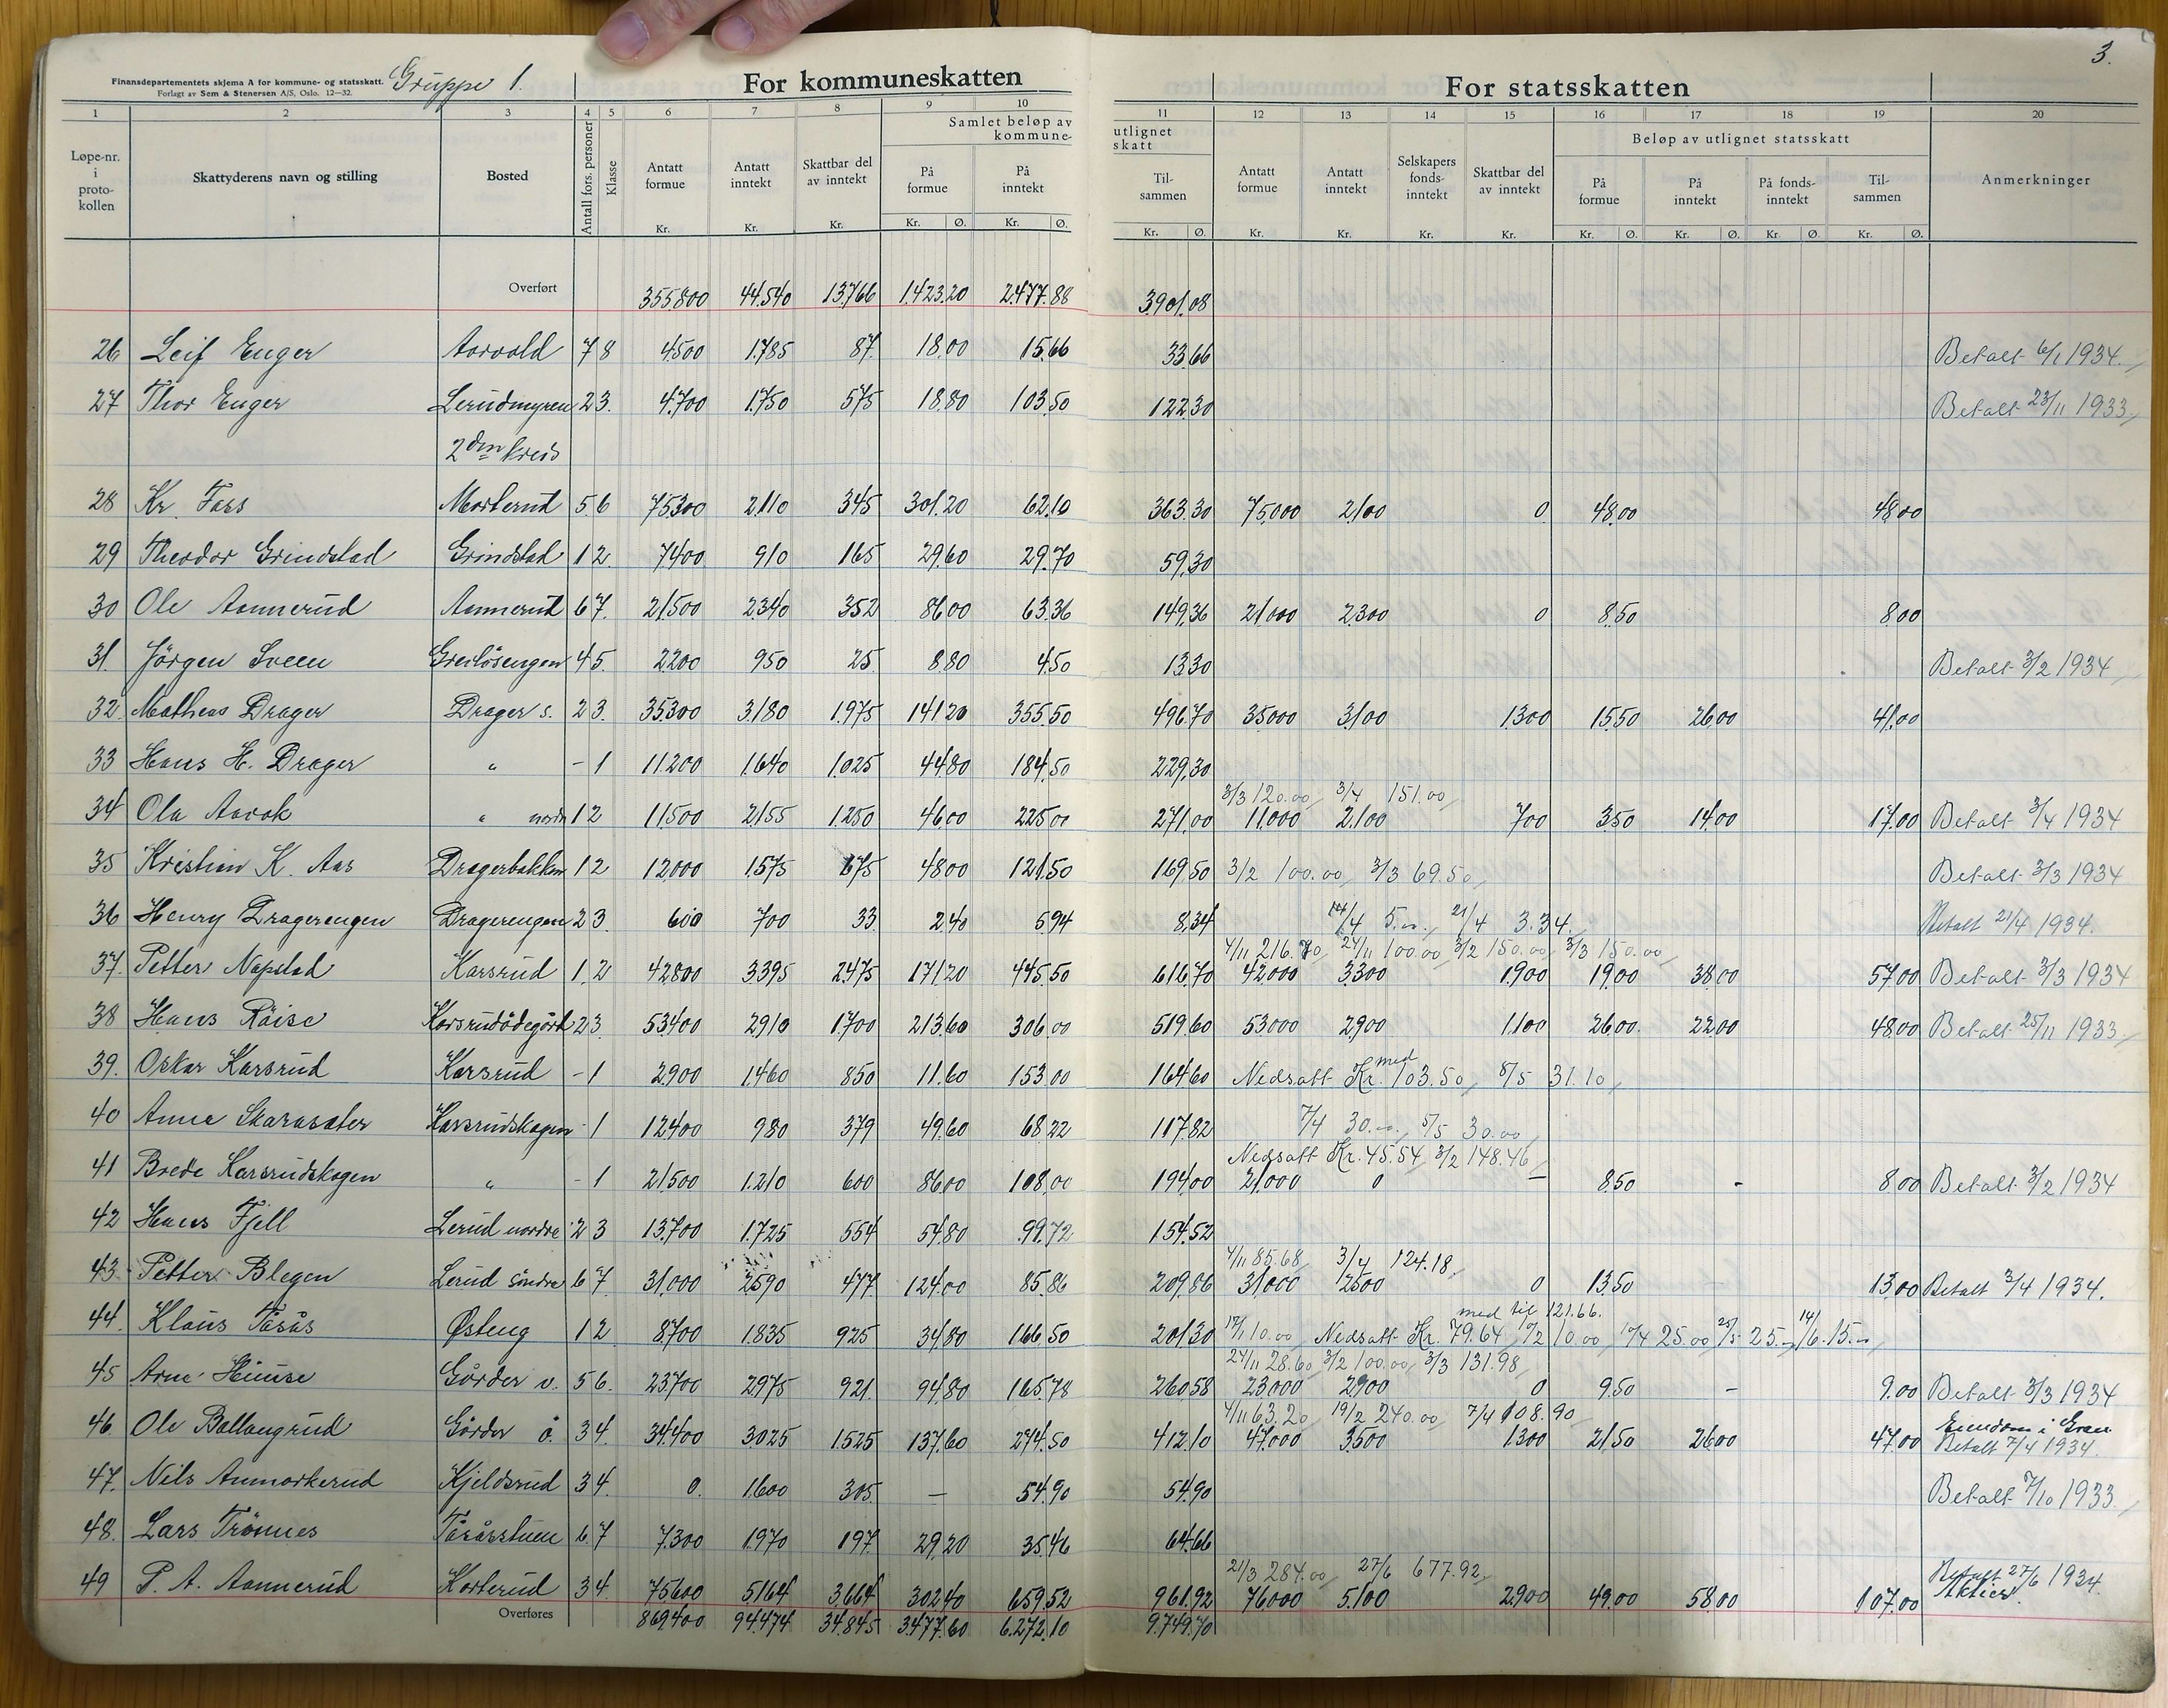 3.
Finansdepartementets skjema A for kommune- og statsskatt. Gruppe 1.
Forlagt av Sem & Stenersen A/S, Oslo. 12—32.
For kommuneskatten For statsskatten
1 2 3 4 5 6 7 8 9 10 11 12 13 14 15 16 17 18 19 20
Løpe-nr. i proto-kollen Skattyderens navn og stilling Bosted Antall fors. personer Klasse Antatt formue Antatt inntekt Skattbar del av inntekt Samlet beløp av kommune- utlignet skatt På formue På inntekt Til-sammen Antatt formue Antatt inntekt Selskapers fonds-inntekt Skattbar del av inntekt Beløp av utlignet statsskatt På formue På inntekt På fonds-inntekt Til-sammen Anmerkninger
Kr. Kr. Kr. Kr. Ø. Kr. Ø. Kr. Ø. Kr. Kr. Kr. Kr. Kr. Ø. Kr. Ø. Kr. Ø. Kr. Ø.
Overført 355.800 44.540 13.766 1.423.20 2.477.88 3.901.08
26 Leif Enger Aarvold 7 8 4500 1.785 87. 18.00 15.66 33.66 Betalt 6/1 1934.
27 Thor Enger Lerudmyren 2 3. 4.700 1.750 575 18.80 103.50 122.30 Betalt 23/11 1933
2den kreds
28 Kr. Fass Morterud 5 6 75300 2.110 345 301.20 62.10 363.30 75.000 2.100 0 48.00 48.00
29 Theodor Grindstad Grindstad 1 2. 7400 910 165 29.60 29.70 59.30
30 Ole Aannerud Aannerud 6 7. 21.500 2340 352 86.00 63.36 149.36 21.000 2300 0 8.50 8.00
31. Jörgen Sveen Grevlösengen 4 5. 2200 950 25. 8.80 4.50 13.30 Betalt 3/2 1934
32. Matheas Drager Drager s. 2 3. 35300 3.180 1.975 141.20 355.50 496.70 35000 3.100 1300 15.50 26.00 41.00
33 Hans H. Drager " - 1 11.200 1.640 1.025 44.80 184.50 229.30
3/3 120.00 3/4 151.00
34 Ola Aavok " nordr 1 2 11.500 2.155 1.250 46.00 225.00 271.00 11.000 2.100 700 3.50 14.00 17.00 Betalt 3/4 1934
35 Kristian K. Aas Dragerbakken 1 2 12.000 1.575 675 48.00 121.50 169.50 3/2 100.00 3/3 69.50 Betalt 3/3 1934
36 Henry Dragerengen Dragerengen 2 3. 600 700 33. 2.40 5.94 8.34 14/4 5.00 21/4 3.34. Betalt 21/4 1934.
4/11 216.70 24/11 100.00 3/2 150.00 3/3 150.00
37. Petter Napstad Karsrud 1. 2. 42800 3.395 2.475 171.20 445.50 616.70 42.000 3.300 1.900 19.00 38.00 57.00 Betalt 3/3 1934
38 Hans Röise Korsrudödegård 2 3. 53400 2.910 1.700 213.60 306.00 519.60 53.000 2.900 1.100 26.00. 22.00 48.00 Betalt 25/11 1933
39. Oskar Karsrud Karsrud - 1 2.900 1.460 850 11.60 153.00 164.60 Nedsatt med Kr. 103.50 8/5 31.10
40 Anna Skarasæter Karsrudskogen - 1 12.400 980 379 49.60 68.22 117.82 7/4 30.00 5/5 30.00
Nedsatt Kr. 45.54 3/2 148.46
41 Brede Karsrudskogen " - 1 21.500 1.210 600 86.00 108.00 194.00 21.000 0 — 8.50 - 8.00 Betalt 3/2 1934
42 Hans Fjell Lerud nordre 2 3 13.700 1.725 554 54.80 99.72 154.52
4/11 85.68 3/4 124.18
43 Petter Blegen Lerud söndre 6 7. 31.000 2590 477. 124.00 85.86 209.86 31.000 2500 0 13.50 13.00 Betalt 3/4 1934.
med til 121.66.
44. Klaus Tåsås Østeng 1 2 8.700 1.835 925 34.80 166.50 201.30 17/1 10.00 Nedsatt Kr. 79.64 10/2 10.00 10/4 25.00 25/5 25.00 14/6 15.00
24/11 28.60 3/2 100.00 3/3 131.98
45 Arne Huuse Gårder v. 5 6. 23.700 2975 921. 94.80 165.78 260.58 23.000 2900 0 9.50 — 9.00 Betalt 3/3 1934
4/11 63.20 19/2 240.00 7/4 108.90
46. Ole Ballangrud Gårder ö. 3 4. 34.400 3.025 1.525 137.60 274.50 412.10 47.000 3.500 1300 21.50 26.00 47.00 Eiendom i Gran
Betalt 7/4 1934.
47. Nils Anmarkerud Kjeldsrud 3 4. 0. 1.600 305 — 54.90 54.90 Betalt 7/10 1933
48. Lars Trönnes Tåsåsstuen 6 7 7.300 1.970 197. 29.20 35.46 64.66
21/3 284.00 27/6 677.92
49 P. A. Aannerud Korterud 3 4. 75600 5164 3.664 302.40 659.52 961.92 76.000 5.100 2.900 49.00 58.00 107.00 Betalt 27/6 1934.
Aktier.
Overføres 869400 94.474 34.845 3.477.60 6.272.10 9.749.70